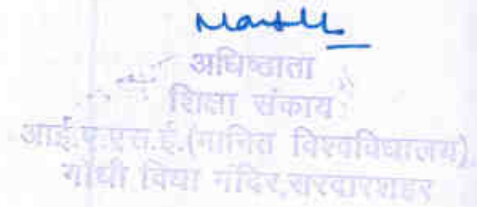 अधिष्ठाता
शिक्षा संकाय
आई.ए.एस.ई.(मानित विश्वविद्यालय)
गाँधी विद्या मंदिर,सरदारशहर